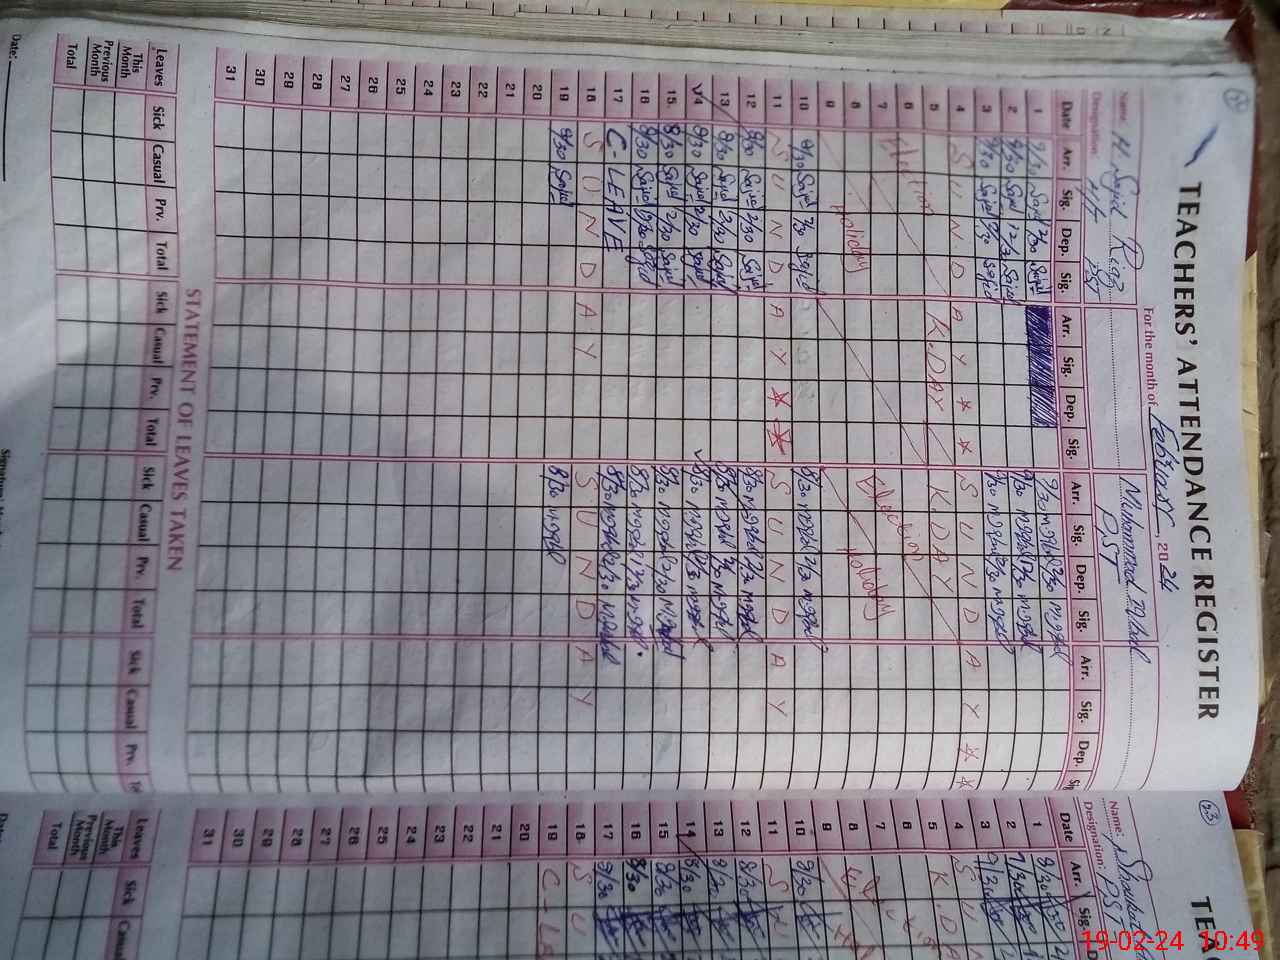 TEACHERS' ATTENDANCE REGISTER
For the month of February, 2024
Name: H. Sajid Riaz
Muhammad Iqbal
Designation: H/T PST
PST
Date Arr. Sig. Dep. Sig. Arr. Sig. Dep. Sig. Arr. Sig. Dep. Sig. Arr. Sig. Dep.
1 Sajid Sajid M.Iqbal M.Iqbal
2 9/30 Sajid Sajid 9/30 M.Iqbal M.Iqbal
3 9/30 Sajid Sajid 9/30 M.Iqbal M.Iqbal
4 S U N D A Y * * S U N D A Y * *
5 K.DAY K.DAY
6
7 Election Election
8 Holiday Holiday
9
10 9/30 Sajid Sajid 8/30 M.Iqbal M.Iqbal
11 S U N D A Y * * S U N D A Y
12 8/30 Sajid 2/30 Sajid 8/30 M.Iqbal M.Iqbal
13 8/30 Sajid 2/30 Sajid 8/30 M.Iqbal M.Iqbal
14 8/30 Sajid 2/30 Sajid 8/30 M.Iqbal M.Iqbal
15 8/30 Sajid 2/30 Sajid 8/30 M.Iqbal 2/30 M.Iqbal
16 8/30 Sajid Sajid 8/30 M.Iqbal M.Iqbal
17 C-LEAVE 8/30 M.Iqbal 2/30 M.Iqbal
18 S U N D A Y S U N D A Y
19 8/30 Sajid 8/30 M.Iqbal
20
21
22
23
24
25
26
27
28
29
30
31
STATEMENT OF LEAVES TAKEN
Leaves Sick Casual Prv. Total Sick Casual Prv. Total Sick Casual Prv. Total Sick Casual Prv.
This Month
Previous Month
Total
Date:
23
TEAC
Name: Shaukat
Designation: PST
Date Arr. Sig.
1 8/30
2
3
4 S U
5 K. D A
6
7
8
9
10 9/30
11 S U
12 8/30
13
14 8/30
15 8/30
16 8/30
17 9/30
18 S U
19 C-LE
20
21
22
23
24
25
26
27
28
29
30
31
Leaves Sick Casual
This Month
Previous Month
Total
19-02-24 10:49